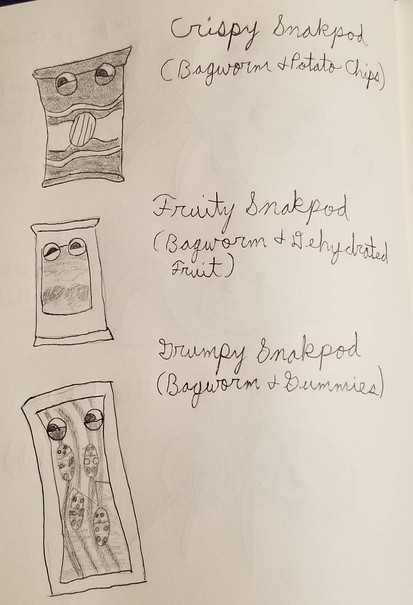 Crispy Snakpod
(Bagworm & Potato Chips)
Fruity Snakpod
(Bagworm & Dehydrated
Fruit)
Grumpy Snakpod
(Bagworm & Gummies)